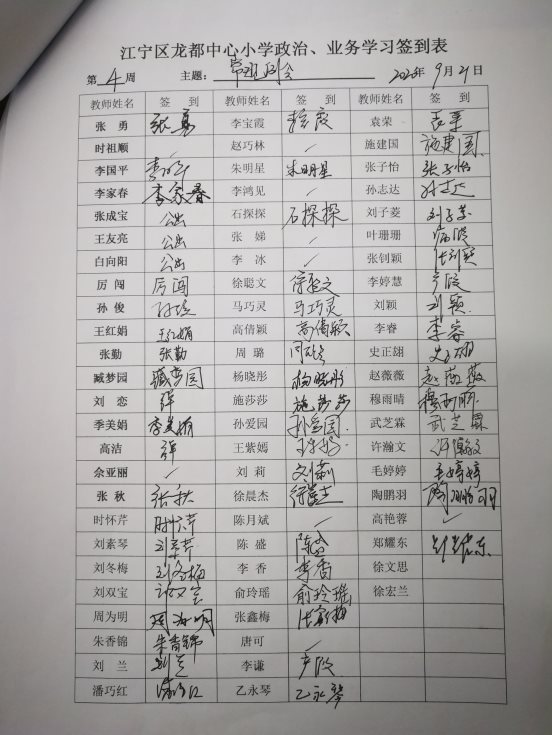 江宁区龙都中心小学政治、业务学习签到表
第 4 周 主题： 常规例会 2020年 9月 21日
教师姓名 签 到 教师姓名 签 到 教师姓名 签 到
张 勇 张勇 李宝霞 袁荣
时祖顺 ✓ 赵巧林 ✓ 施建国 施建国
李国平 朱明星 朱明星 张子怡 张子怡
李家春 李家春 李鸿见 ✓ 孙志达 孙志达
张成宝 公出 石探探 石探探 刘子菱 刘子菱
王友亮 公出 张 娣 ✓ 叶珊珊 病假
白向阳 公出 李 冰 ✓ 张钊颖 张钊颖
厉 闯 厉闯 徐聪文 徐聪文 李婷慧 产假
孙 俊 马巧灵 马巧灵 刘颖 刘颖
王红娟 王红娟 高倩颖 高倩颖 李睿 李睿
张勤 张勤 周 璐 史正翃 史正翃
臧梦园 臧梦园 杨晓彤 杨晓彤 赵薇薇 赵薇薇
刘 恋 施莎莎 施莎莎 穆雨晴 穆雨晴
季美娟 季美娟 孙爱园 孙爱园 武芝霖 武芝霖
高洁 王紫嫣 许瀚文 许瀚文
佘亚丽 ✓ 刘 莉 刘莉 毛婷婷 毛婷婷
张 秋 张秋 徐晨杰 徐晨杰 陶鹏羽 陶鹏羽
时怀芹 时怀芹 陈月斌 ✓ 高艳蓉 ✓
刘素琴 陈 盛 陈盛 郑耀东 郑耀东
刘冬梅 刘冬梅 李 香 李香 徐文思
刘双宝 俞玲瑶 俞玲瑶 徐宏兰
周为明 周为明 张鑫梅 张鑫梅
朱香锦 朱香锦 唐可 ✓
刘 兰 刘兰 李谦 产假
潘巧红 潘巧红 乙永琴 乙永琴